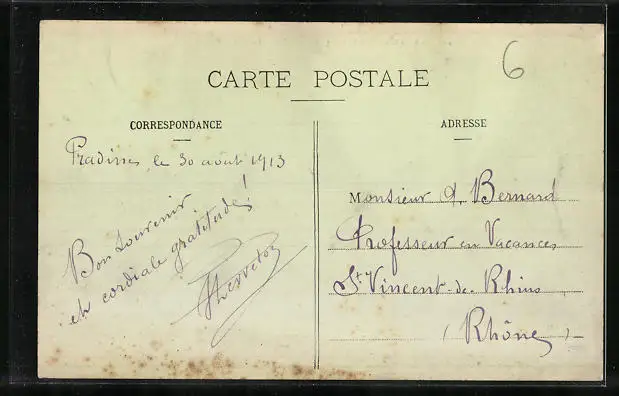 6
CARTE POSTALE
CORRESPONDANCE
ADRESSE
Pradines, le 30 août 1913
Bon Souvenir
et cordiale gratitude!
Monsieur J. Bernard
Professeur en Vacances
St Vincent-de-Rhins
(Rhône)